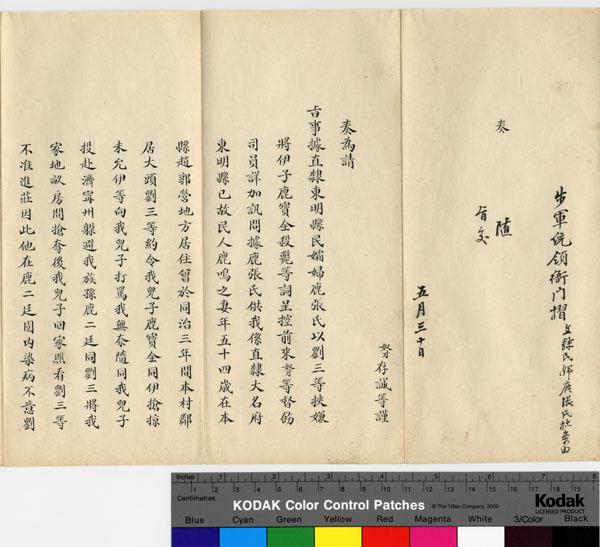 步軍統領衙門摺 直隸民婦鹿張氏控案由
奏
隨
旨交
五月三十日
奴才存誠等謹
奏為請
旨事據直隸東明縣民孀婦鹿張氏以劉三等挾嫌
將伊子鹿寶全殺斃等詞呈控前來奴才等督飭
司員詳加訊問據鹿張氏供我係直隸大名府
東明縣已故民人鹿鳴之妻年五十四歲在本
縣趙郭營地方居住曾於同治三年間本村鄰
居大頭劉三等約令我兒子鹿寶全同伊搶掠
未允伊等向我兒子打罵我無奈隨同我兒子
投赴濟甯州躲避我族孫鹿二廷同劉三將我
家地畝房間搶奪後我兒子回家照看劉三等
不准進莊因此他在鹿二廷園內染病不意劉
Inches 1 2 3 4 5 6 7 8
Centimetres 1 2 3 4 5 6 7 8 9 10 11 12 13 14 15 16 17 18 19
KODAK Color Control Patches © The Tiffen Company, 2000 Kodak
LICENSED PRODUCT
Blue Cyan Green Yellow Red Magenta White 3/Color Black